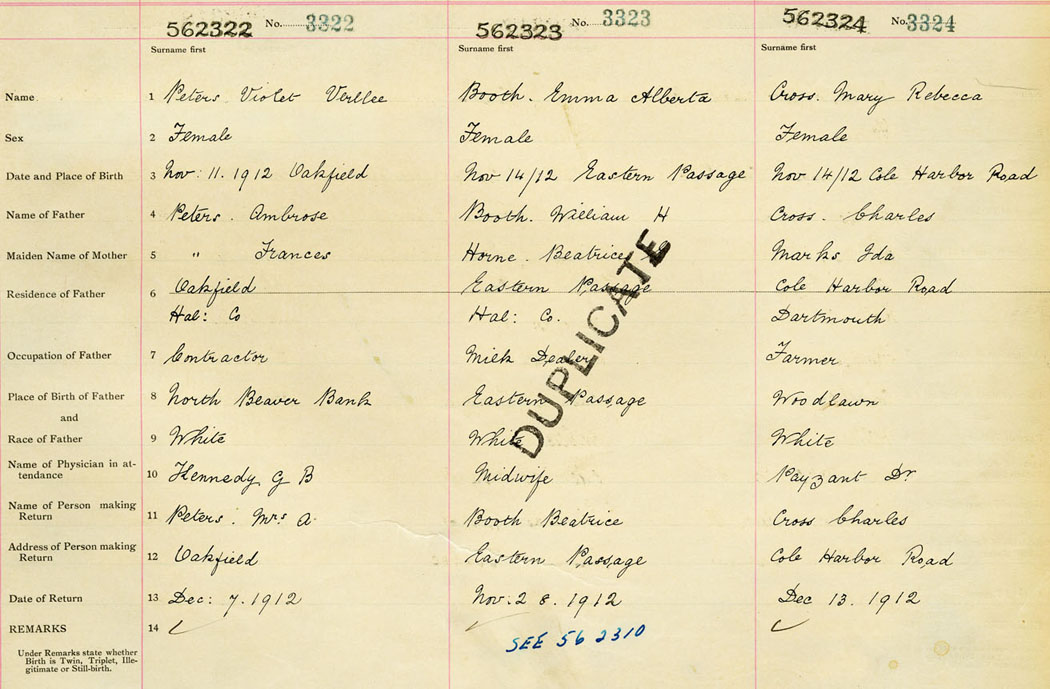 562322 No. 3322 562323 No. 3323 562324 No. 3324
Surname first Surname first Surname first
Name 1 Peters Violet Verllee Booth. Emma Alberta Cross. Mary Rebecca
Sex 2 Female Female Female
Date and Place of Birth 3 Nov: 11. 1912 Oakfield Nov 14/12 Eastern Passage Nov 14/12 Cole Harbor Road
Name of Father 4 Peters. Ambrose Booth. William H Cross. Charles
Maiden Name of Mother 5 " Frances Horne. Beatrice Marks Ida
Residence of Father 6 Oakfield Eastern Passage Cole Harbor Road
Hal: Co Hal: Co. Dartmouth
Occupation of Father 7 Contractor Milk Dealer Farmer
Place of Birth of Father 8 North Beaver Bank Eastern Passage Woodlawn
and
Race of Father 9 White White White
Name of Physician in at-
tendance 10 Kennedy G B Midwife Payzant Dr
Name of Person making
Return 11 Peters. Mrs A. Booth Beatrice Cross Charles
Address of Person making
Return 12 Oakfield Eastern Passage Cole Harbor Road
Date of Return 13 Dec: 7. 1912 Nov. 28. 1912 Dec 13. 1912
REMARKS 14
Under Remarks state whether
Birth is Twin, Triplet, Ille-
gitimate or Still-birth.
DUPLICATE
SEE 562310